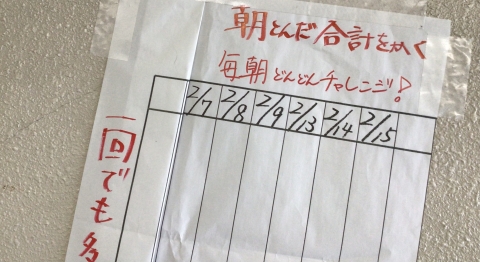 朝とんだ合計をかく
毎朝どんどんチャレンジ!
2/7 2/8 2/9 2/13 2/14 2/15
一回でも多